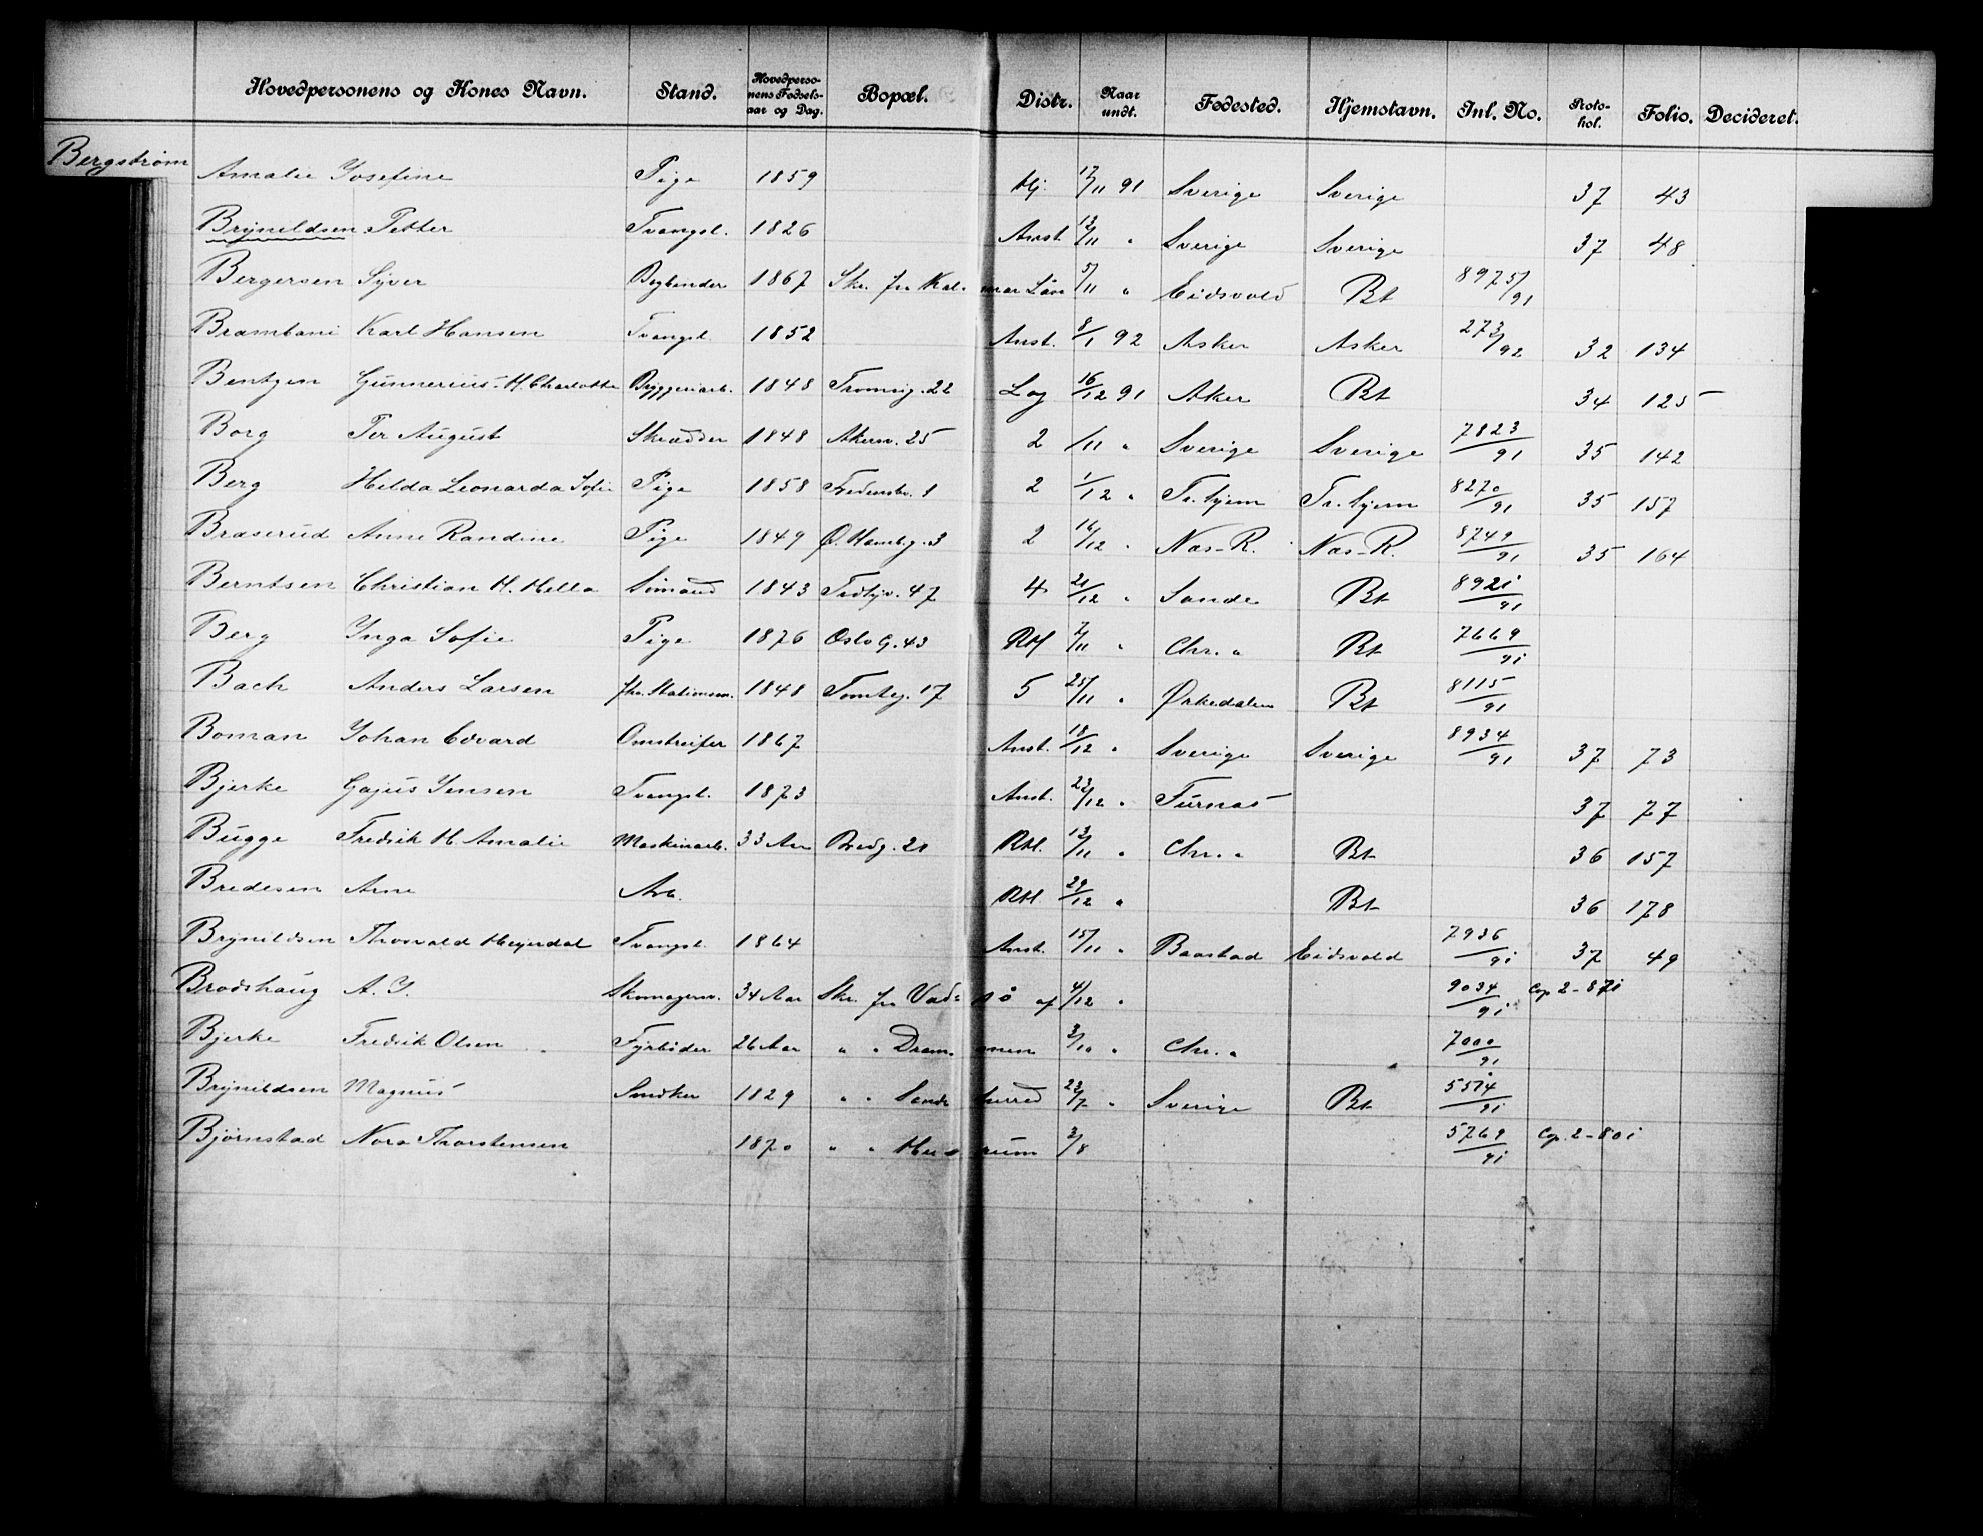 Hovedpersonens og Kones Navn. Stand. Hovedpersonens Fødselsaar og Dag. Bopæl. Distr. Naar undt. Fødested. Hjemstavn. Inl. No. Protokol. Folio. Decideret.
Bergstrøm Amalie Josefine Pige 1859 Hj. 17/11 91 Sverige Sverige 37 43
Brynildsen Petter Tvangsl. 1826 Anst. 12/11 " Sverige Sverige 37 48
Bergersen Syver Bogbinder 1867 Skr. fra Kalmar Län 5/11 " Eidsvold Bt 8975/91
Brambani Karl Hansen Tvangsl. 1852 Anst. 8/1 92 Asker Asker 273/92 32 134
Bentzen Gunnerius - H. Charlotte Bryggeriarb. 1848 Tromsøg. 22 Log 16/12 91 Aker Bt 34 125
Borg Per August Skrædder 1848 Akersv. 25 2 /11 " Sverige Sverige 7823/91 35 142
Berg Hilda Leonarda Sofie Pige 1858 Fredensbv. 1 2 1/12 " Tr.hjem Tr.hjem 8270/91 35 157
Braserud Anne Randine Pige 1849 Ø. Hambg. 3 2 16/12 " Næs-R. Næs-R. 8749/91 35 164
Berntsen Christian H. Hella Sømand 1843 Trdhjv. 47 4 21/12 " Sande Bt 8921/91
Berg Inga Sofie Pige 1876 Oslo G. 43 Rtl 7/11 " Chr. a Bt 7669/91
Bach Anders Larsen fhv. Stationsm. 1848 Tomteg. 17 5 25/11 " Ørkedalen Bt 8115/91
Boman Johan Edvard Omstreifer 1867 Anst. 18/12 " Sverige Sverige 8934/91 37 73
Bjerke Gajus Jensen Tvangsl. 1873 Anst. 22/12 " Furnæs 37 77
Bugge Fredrik H. Amalie Maskinarb. 33 Aar Bredg. 21 Rtl. 13/11 " Chr. a Bt 36 157
Bredesen Arne Arb. Rtl 29/12 " Bt 36 178
Brynildsen Thorvald Heyerdal Tvangsl. 1864 Anst. 15/11 " Baastad Eidsvold 7936/91 37 49
Brodshaug A. J. Skomagersv. 34 Aar Skr. fra Vadsø af 4/12 " 9034/91 Cop. 2-871
Bjerke Fredrik Olsen Fyrbøder 26 Aar " " Drammen 3/10 " Chr. a 7000/91
Brynildsen Magnus Snedker 1829 " " Sandeherred 23/7 " Sverige Bt 5514/91
Bjørnstad Nora Thorstensen 1870 " " Hurum 3/8 5769/91 Cop. 2-801